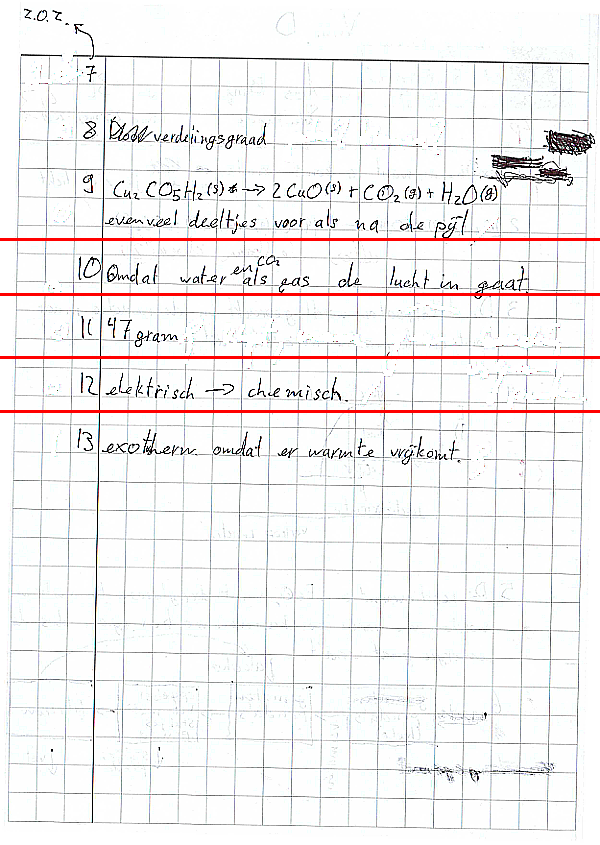 Z.O.Z.
7
8 verdelingsgraad
9 Cu₂CO₅H₂(s) → 2 CuO(s) + CO₂(g) + H₂O(g)
evenveel deeltjes voor als na de pijl
10 Omdat water en CO₂ als gas de lucht in gaat.
11 47 gram
12 elektrisch → chemisch.
13 exotherm omdat er warmte vrijkomt.